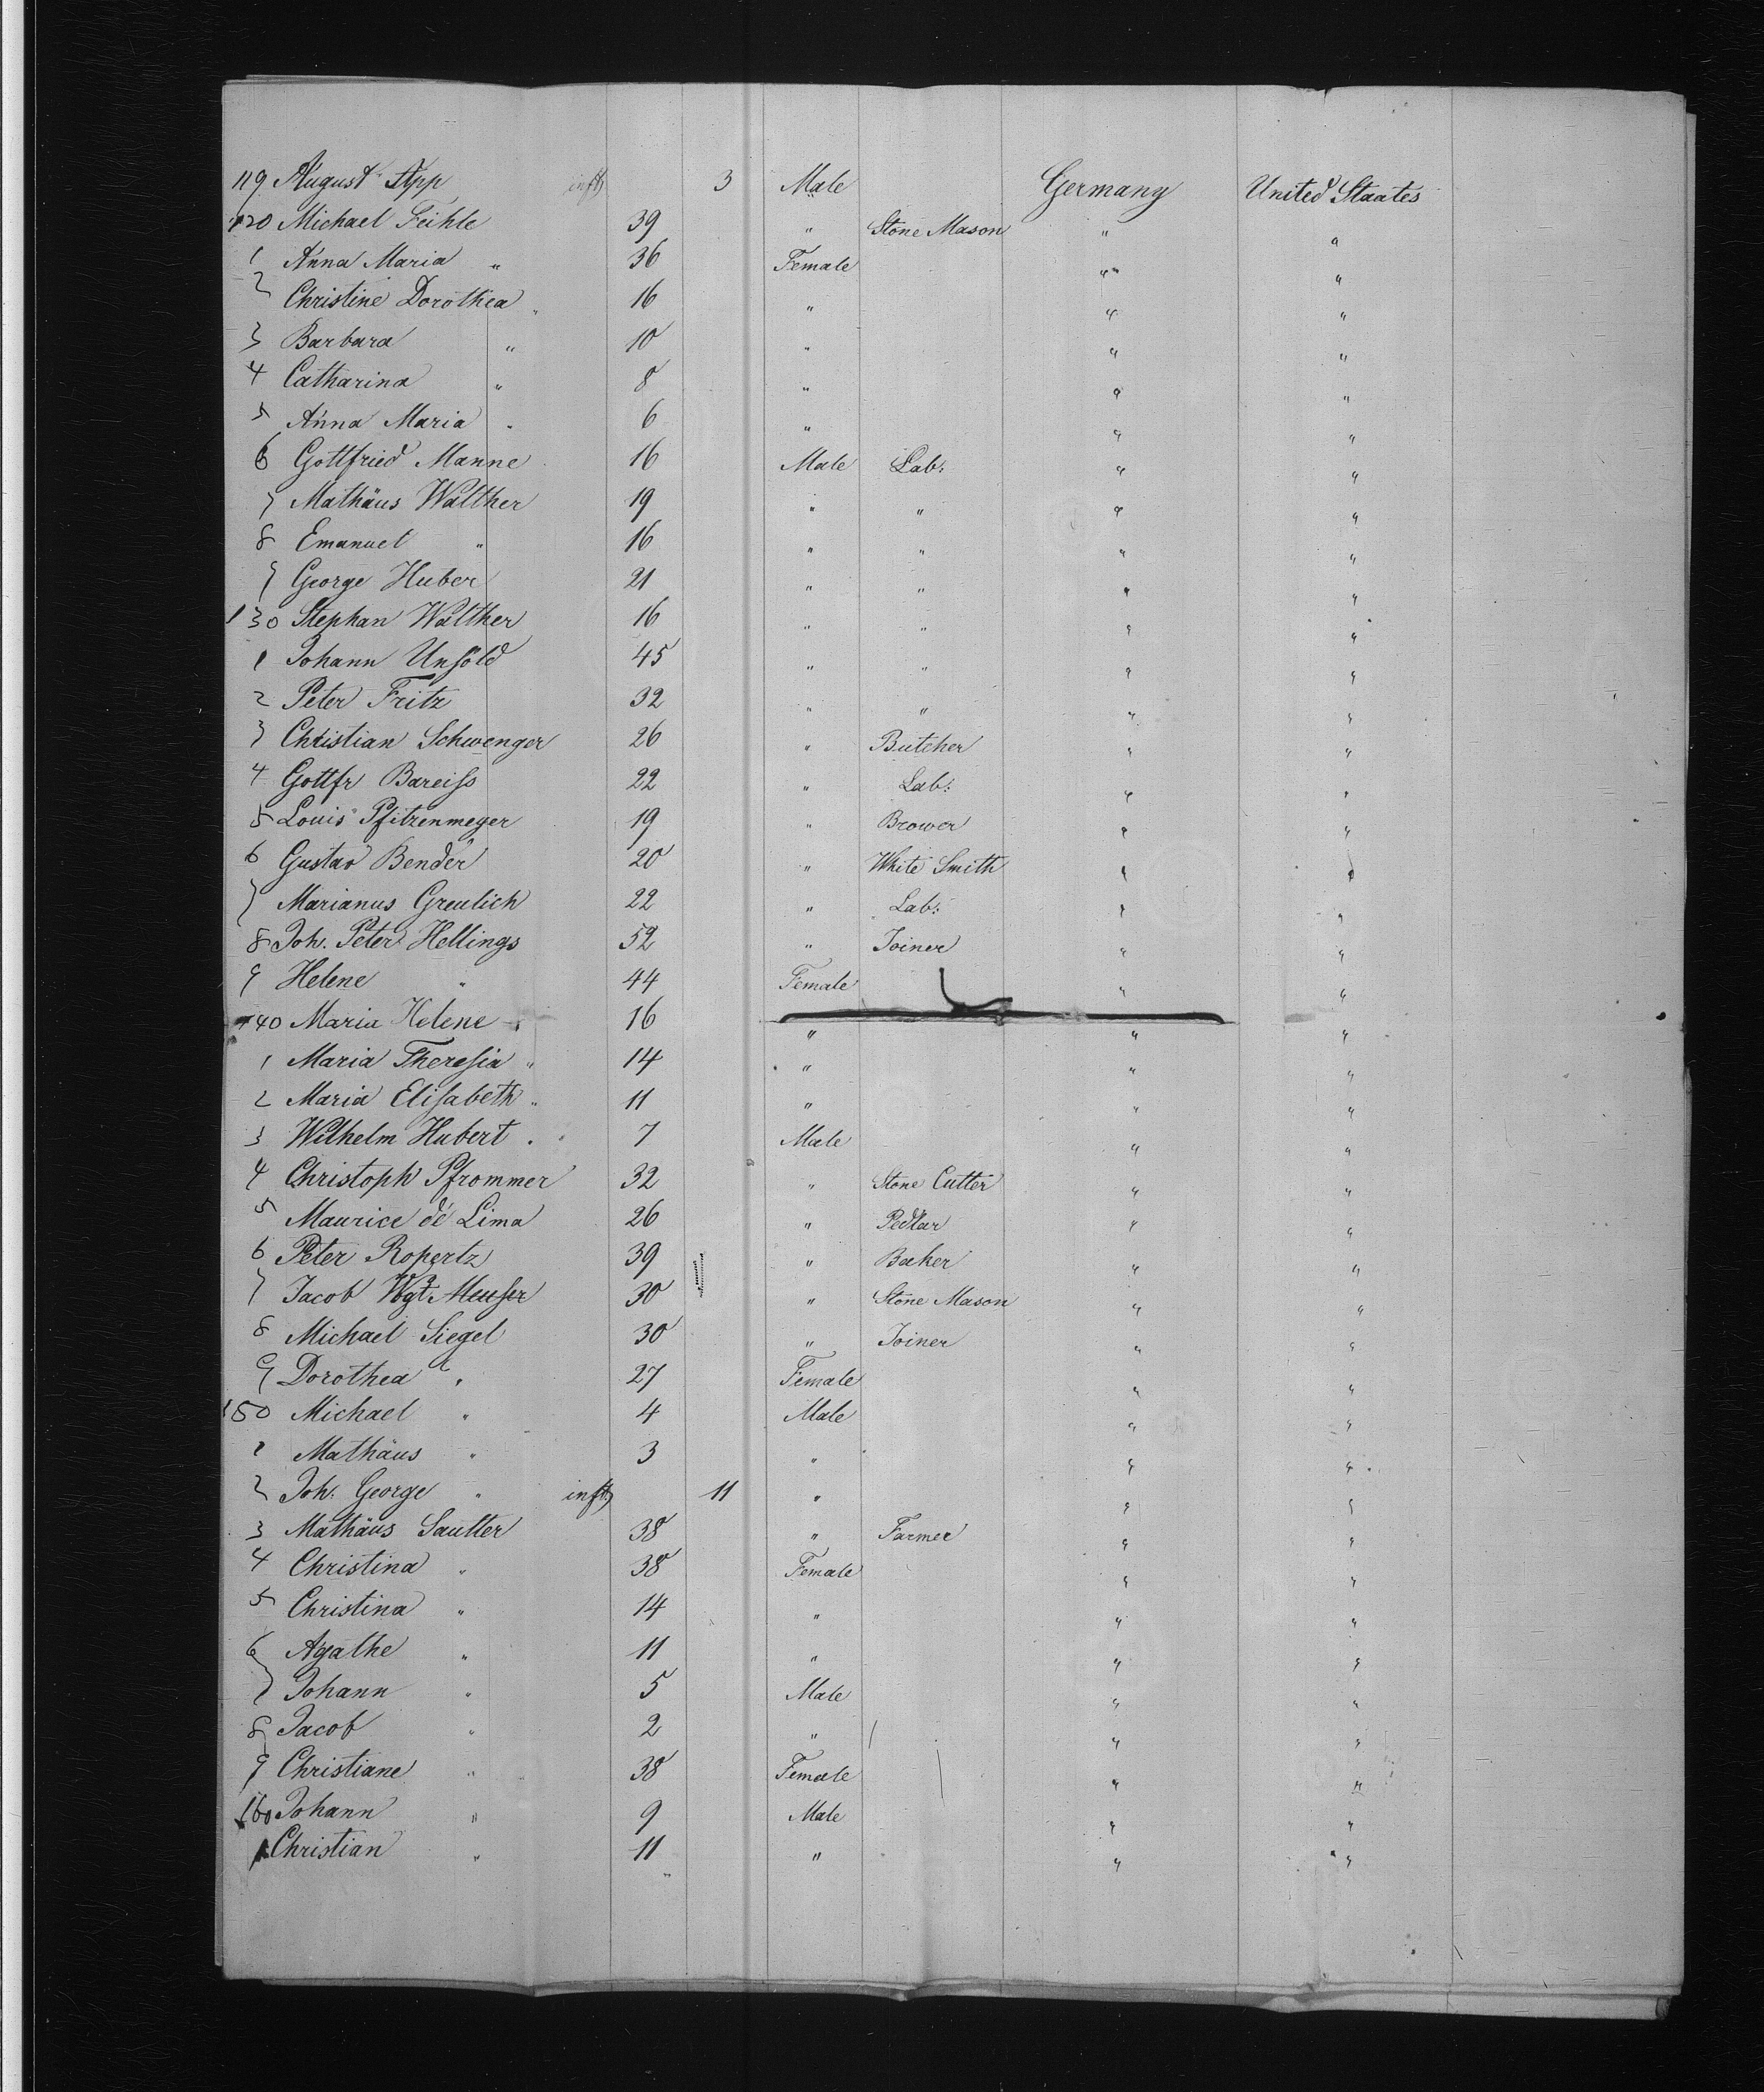 119 August App inft 3 Male Germany United Staates
120 Michael Feihle 39 " Stone Mason " "
1 Anna Maria " 36 Female " "
2 Christine Dorothea " 16 " " "
3 Barbara " 10 " " "
4 Catharina " 8 " " "
5 Anna Maria " 6 " " "
6 Gottfried Manne 16 Male Lab: " "
7 Mathäus Walther 19 " " " "
8 Emanuel " 16 " " " "
9 George Huber 21 " " " "
130 Stephan Walther 16 " " " "
1 Johann Unsöld 45 " " " "
2 Peter Fritz 32 " " " "
3 Christian Schwenger 26 " Butcher " "
4 Gottfr Bareiss 22 " Lab: " "
5 Louis Pfitzenmeyer 19 " Brower " "
6 Gustav Bender 20 " White Smith " "
7 Marianus Greulich 22 " Lab: " "
8 Joh. Peter Hellings 52 " Joiner " "
9 Helene " 44 Female " "
140 Maria Helene " 16 " " "
1 Maria Theresia " 14 " " "
2 Maria Elisabeth " 11 " " "
3 Wilhelm Hubert " 7 Male " "
4 Christoph Pfrommer 32 " Stone Cutter " "
5 Maurice de Lima 26 " Pedlar " "
6 Peter Ropertz 39 " Baker " "
7 Jacob Vogt 30 " Stone Mason " "
8 Michael Siegel 30 " Joiner " "
9 Dorothea " 27 Female " "
150 Michael " 4 Male " "
1 Mathäus " 3 " " "
2 Joh. George " inft 11 " " "
3 Mathäus Sautter 38 " Farmer " "
4 Christina " 38 Female " "
5 Christina " 14 " " "
6 Agathe " 11 " " "
7 Johann " 5 Male " "
8 Jacob " 2 " " "
9 Christiane " 38 Female " "
160 Johann " 9 Male " "
1 Christian " 11 " " "